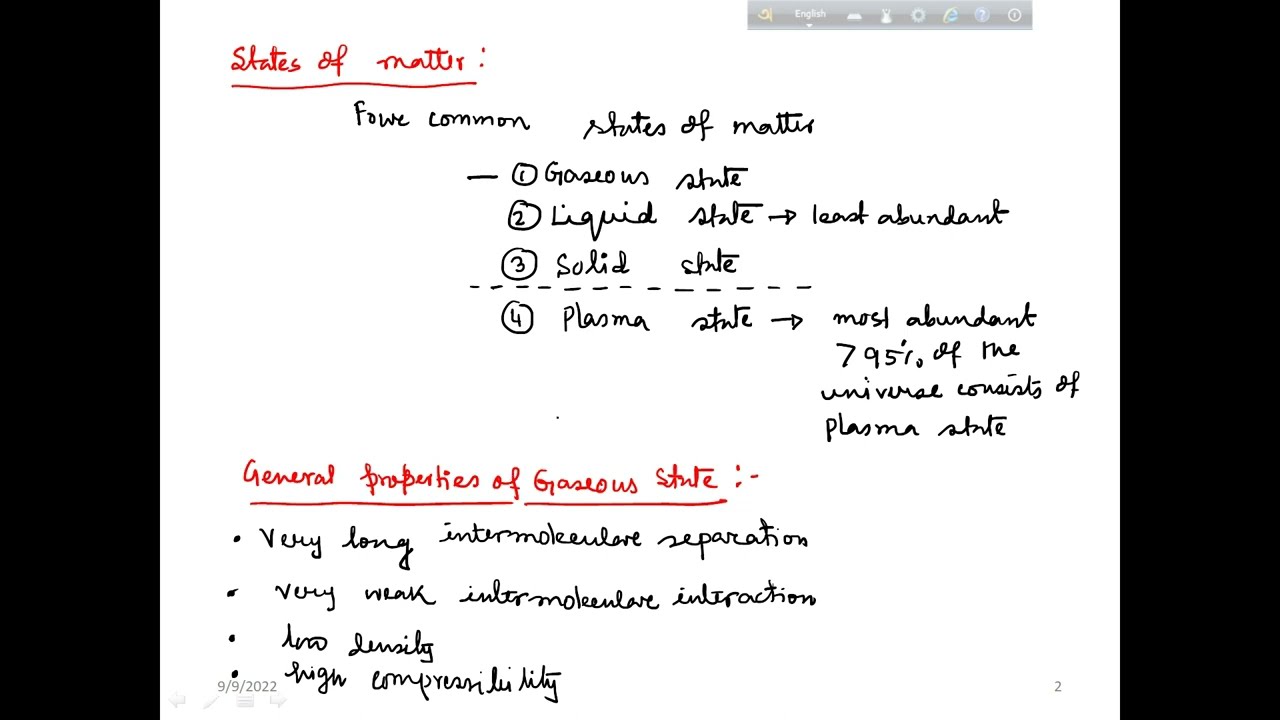 English
States of matter :
Foure common states of matter
— ① Gaseous state
② Liquid state → least abundant
③ Solid state
④ Plasma state → most abundant
> 95% of the
universe consists of
plasma state
General properties of Gaseous State :-
• Very long intermolecular separation
• very weak intermolecular interaction
• low density
• high compressibility
9/9/2022
2